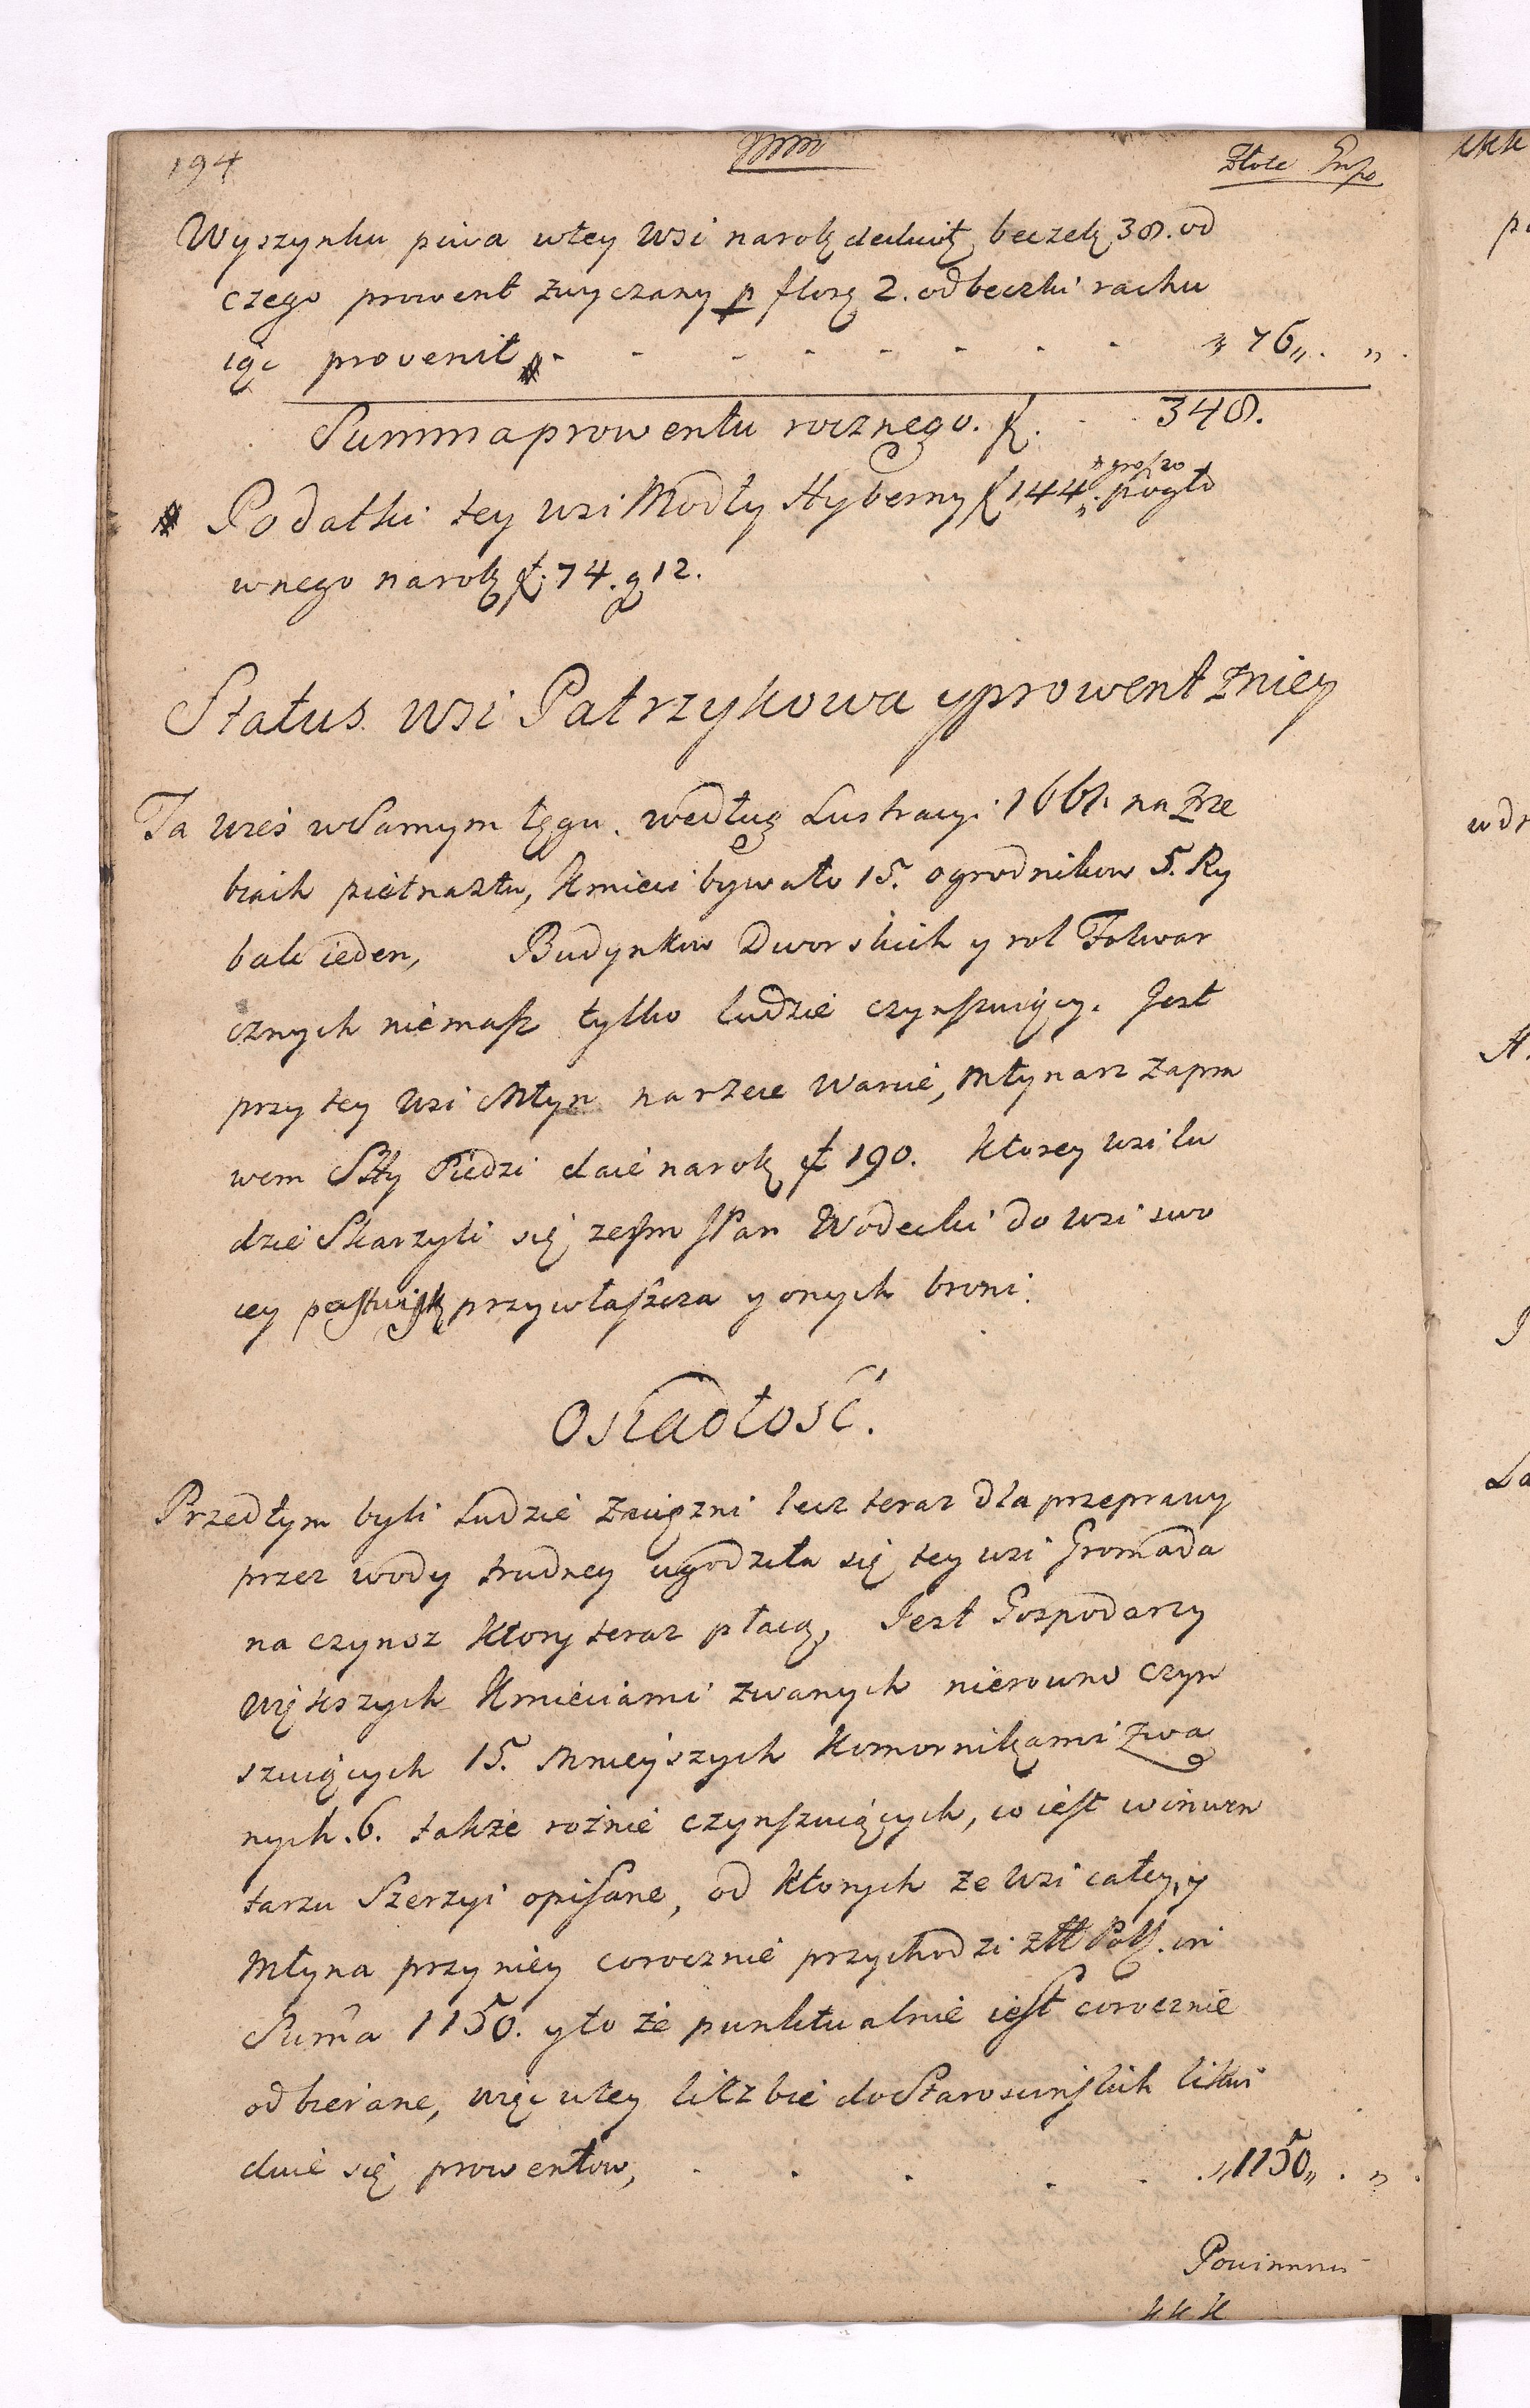 194
Złote Grosz
Wyszynku piwa wtey Wsi narok beczek 38. od
czego prowent zwyczany p flore 2. od beczki rachu
iąc provenit 76
Summa prowentu rocznego. f. 348.
Podatki tey wsi Modły Hyberny f 144. grosz 20 pogło
wnego narok f: 74. g 12.
Status wsi Patrzykowa y prowent zniey
Ta wieś wsamym łęgu. według Lustracyi 1661. na Zrze
biach piętnastu, Kmieci bywało 15. ogrodnikow 5. Ry
bak ieden, Budynkow Dworskich y rol Folwar
cznych niemasz tylko ludzie czynszuiący. Jest
przy tey wsi Młyn narzece Warcie, Młynarz zapra
wem daie narok f 190. Ktorey wsi lu
dzie Skarzyli się Pan Wodecki do wsi swo
iey pastwisk przywłaszcza y onych broni.
Osiadłość.
Przedtym byli Ludzie Zaciężni lecz teraz dla przeprawy
przez wody trudney ugodziła się tey wsi Gromada
na czynsz ktory teraz płacą, Jest Gospodarzy
większych Kmieciami zwanych nierowno czyn
szuiących 15. Mnieyszych Komornikami zwa
nych. 6. także rożnie czynszuiących, co iest winwen
tarzu Szerzyi opisane, od ktorych ze wsi całey, y
Młyna przy niey corocznie przychodzi złł Pols. in
Suma 1150. y to że punktualnie iest corocznie
odbierane, więc wtey liczbie do Starościnskich likwi
duie się prowentow, 1150
Powinnos
kkk